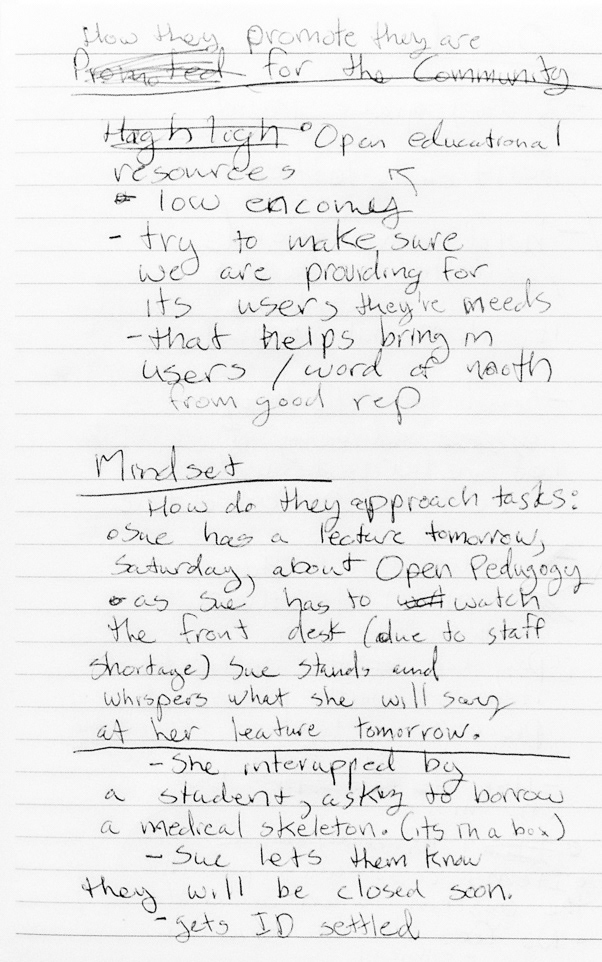 How they promote they are
Promoted for the Community
High ligh • Open educational
resources
- low encomey
- try to make sure
we are providing for
its users they're needs
- that helps bring in
users / word of mooth
from good rep
Mindset
How do they approach tasks:
• Sue has a lecture tomorrow,
Saturday, about Open Pedugogy
• as Sue has to watch
the front desk (due to staff
shortage) Sue stands and
whispers what she will say
at her leature tomorrow.
- She interupped by
a student, asking to borrow
a medical skeleton. (its in a box)
- Sue lets them know
they will be closed soon.
- gets ID settled